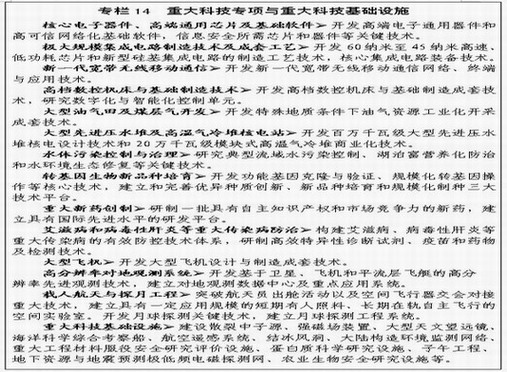 专栏 14 重大科技专项与重大科技基础设施
核心电子器件、高端通用芯片及基础软件＞开发高端电子通用器件和
高可信网络化基础软件，信息安全所需芯片和器件等关键技术。
极大规模集成电路制造技术及成套工艺＞开发60纳米至45纳米高速、
低功耗芯片和新型硅基集成电路的制造工艺技术，核心集成电路装备技术。
新一代宽带无线移动通信＞开发新一代宽带无线移动通信网络、终端
与应用技术。
高档数控机床与基础制造技术＞开发高档数控机床与基础制造成套技
术，研究数字化与智能化控制单元。
大型油气田及煤层气开发＞开发特殊地质条件下油气资源工业化开采
成套技术。
大型先进压水堆及高温气冷堆核电站＞开发百万千瓦级大型先进压水
堆核电设计技术和20万千瓦级模块式高温气冷堆商业化技术。
水体污染控制与治理＞研究典型流域水污染控制、湖泊富营养化防治
和水环境生态修复等关键技术。
转基因生物新品种培育＞开发功能基因克隆与验证、规模化转基因操
作等核心技术，建立和完善优异种质创新、新品种培育和规模化制种三大
技术平台。
重大新药创制＞研制一批具有自主知识产权和市场竞争力的新药，建
立具有国际先进水平的研发平台。
艾滋病和病毒性肝炎等重大传染病防治＞构建艾滋病、病毒性肝炎等
重大传染病的有效防控技术体系，研制高效特异性诊断试剂、疫苗和药物
及检测技术。
大型飞机＞开发大型飞机设计与制造成套技术。
高分辨率对地观测系统＞开发基于卫星、飞机和平流层飞艇的高分
辨率先进观测技术，建立对地观测数据中心及重点应用系统。
载人航天与探月工程＞突破航天员出舱活动以及空间飞行器交会对接
重大技术，建立具有一定应用规模的短期有人照料、长期在轨自主飞行的
空间实验室。开发月球探测关键技术，建立月球探测工程系统。
重大科技基础设施＞建设散裂中子源、强磁场装置、大型天文望远镜、
海洋科学综合考察船、航空遥感系统、结冰风洞、大陆构造环境监测网络、
重大工程材料服役安全研究评价设施、蛋白质科学研究设施、子午工程、
地下资源与地震预测极低频电磁探测网、农业生物安全研究设施等。